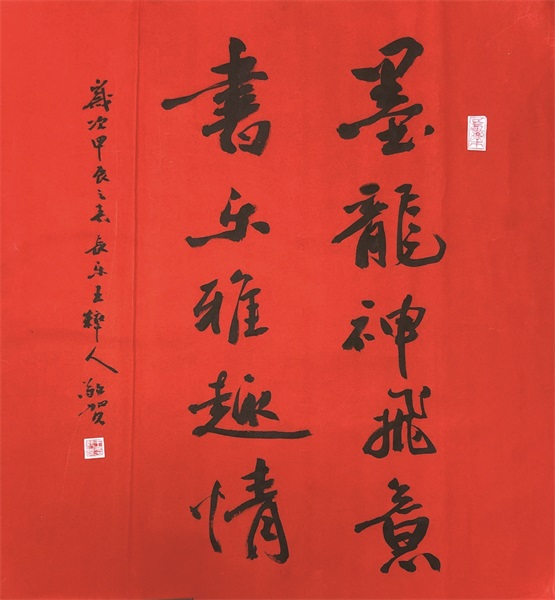 墨龍神飛意
書乐雅趣情
歲次甲辰之春長乐王粹人敬贺